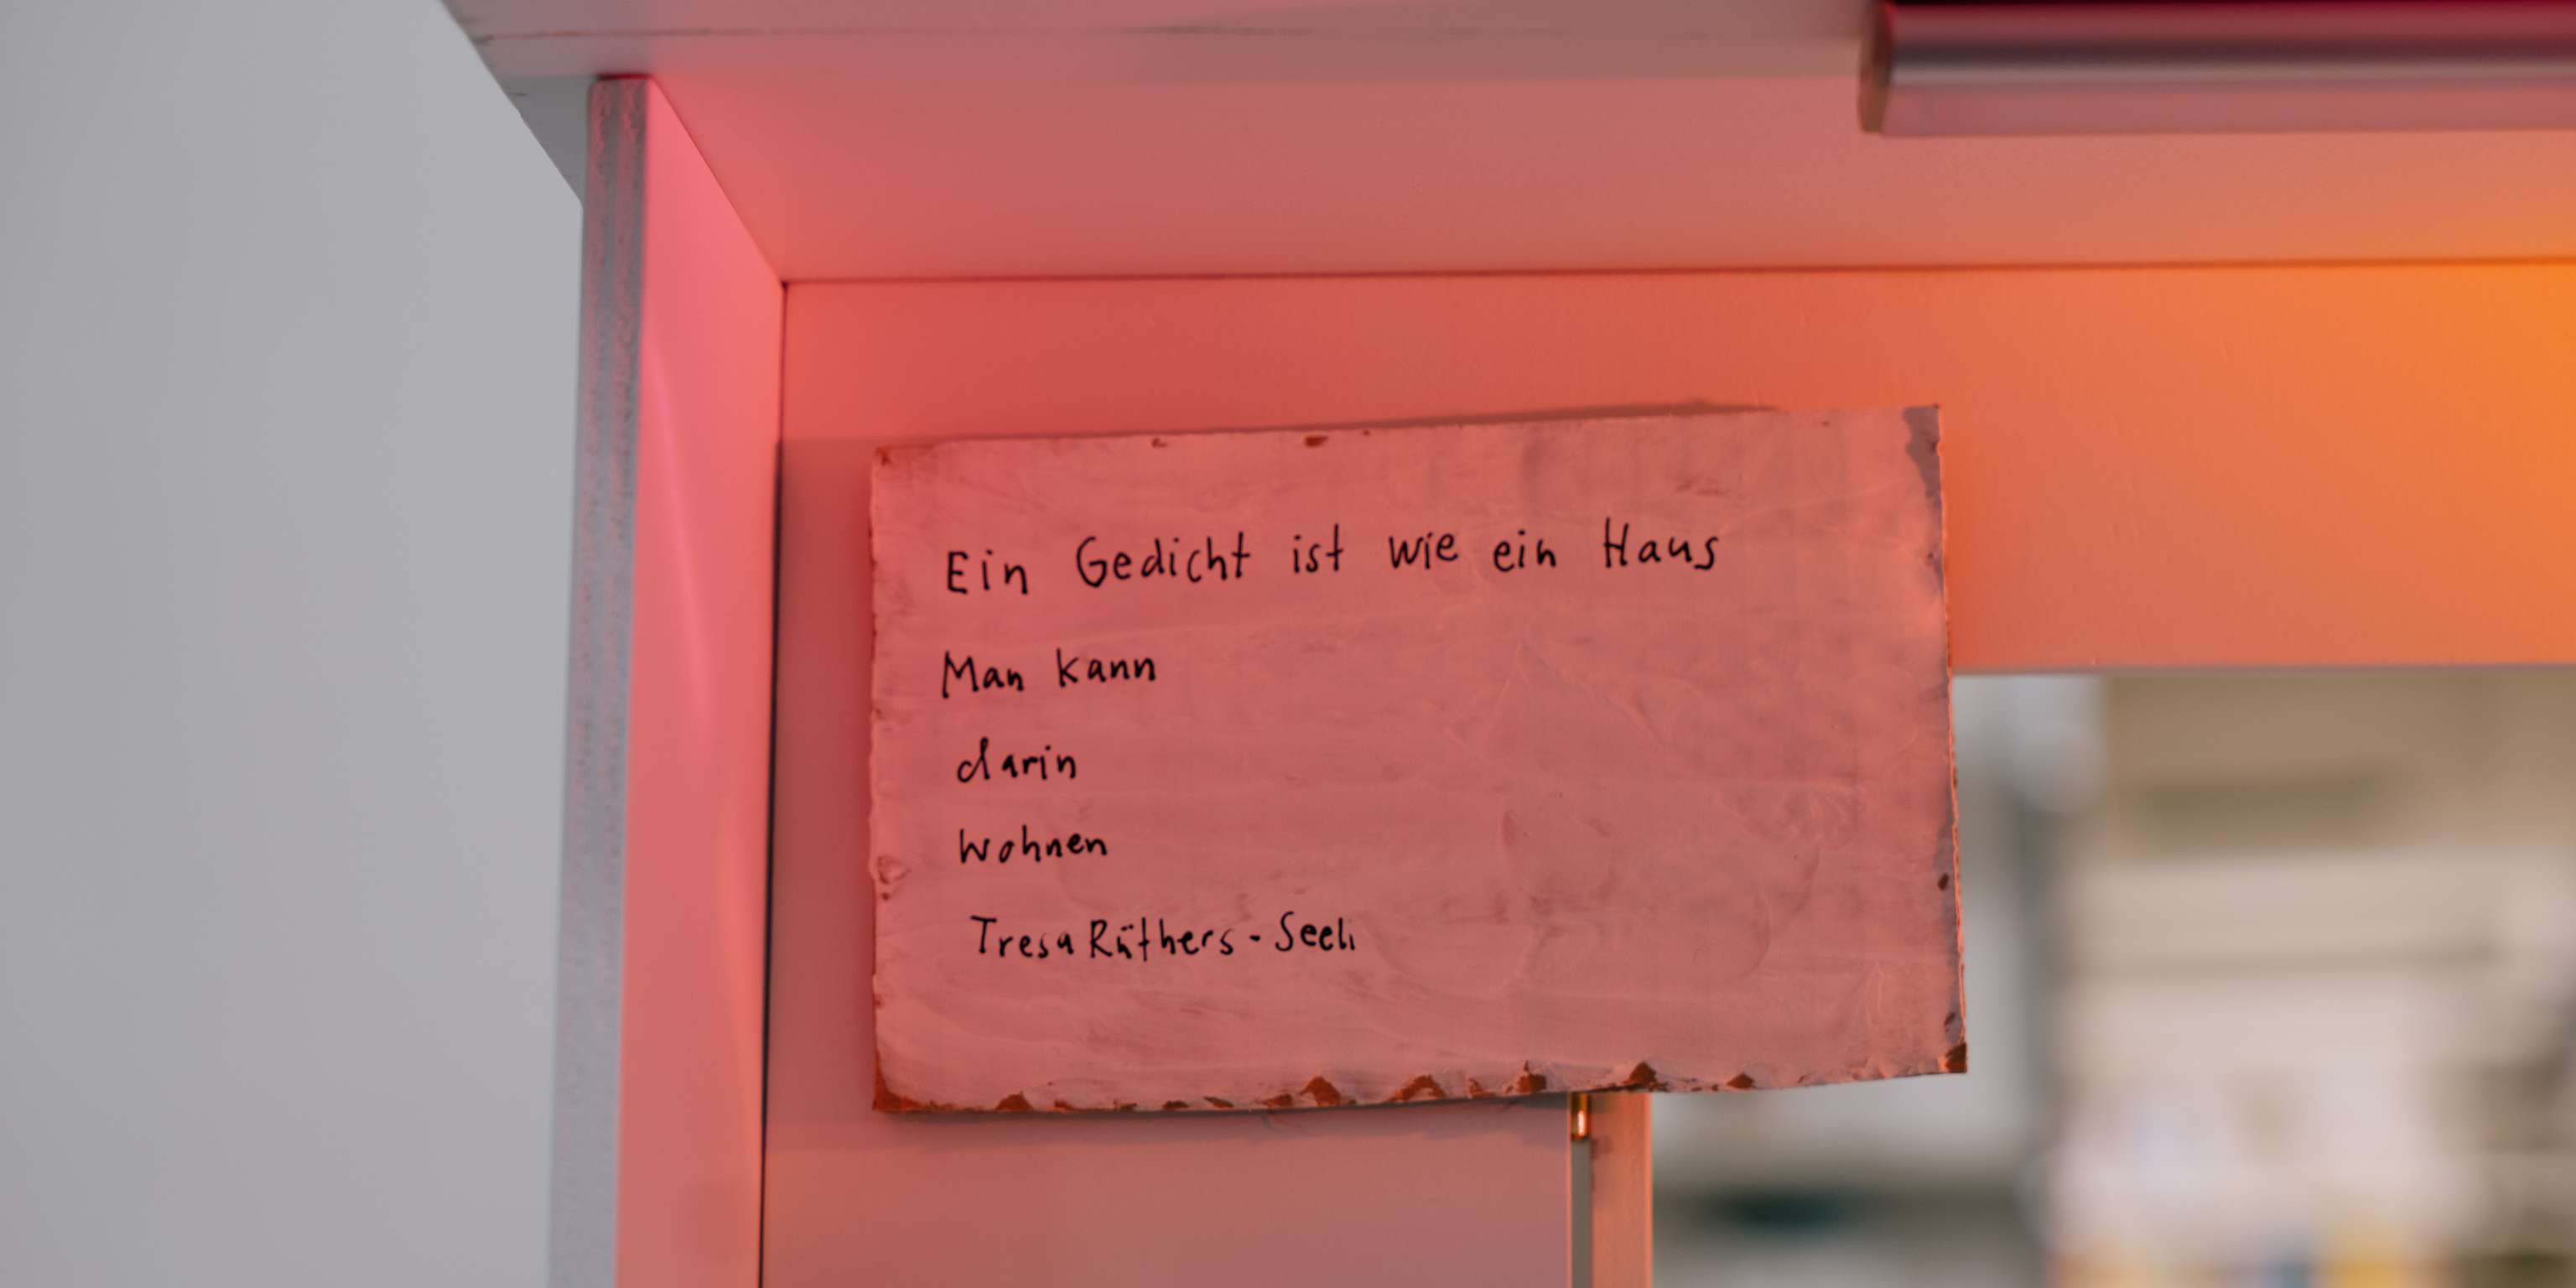 Ein Gedicht ist wie ein Haus
Man kann
darin
wohnen
Tresa Rüthers-Seeli